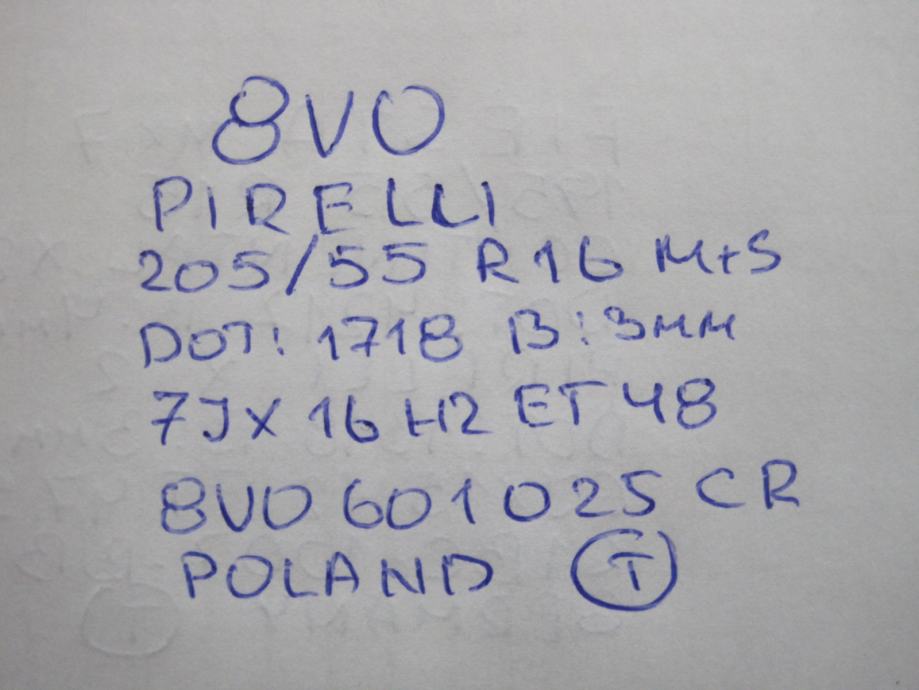 8VO
PIRELLI
205/55 R16 M+S
DOT: 1718 B:3мм
7JX 16 H2 ET 48
8VO 601 025 CR
POLAND T